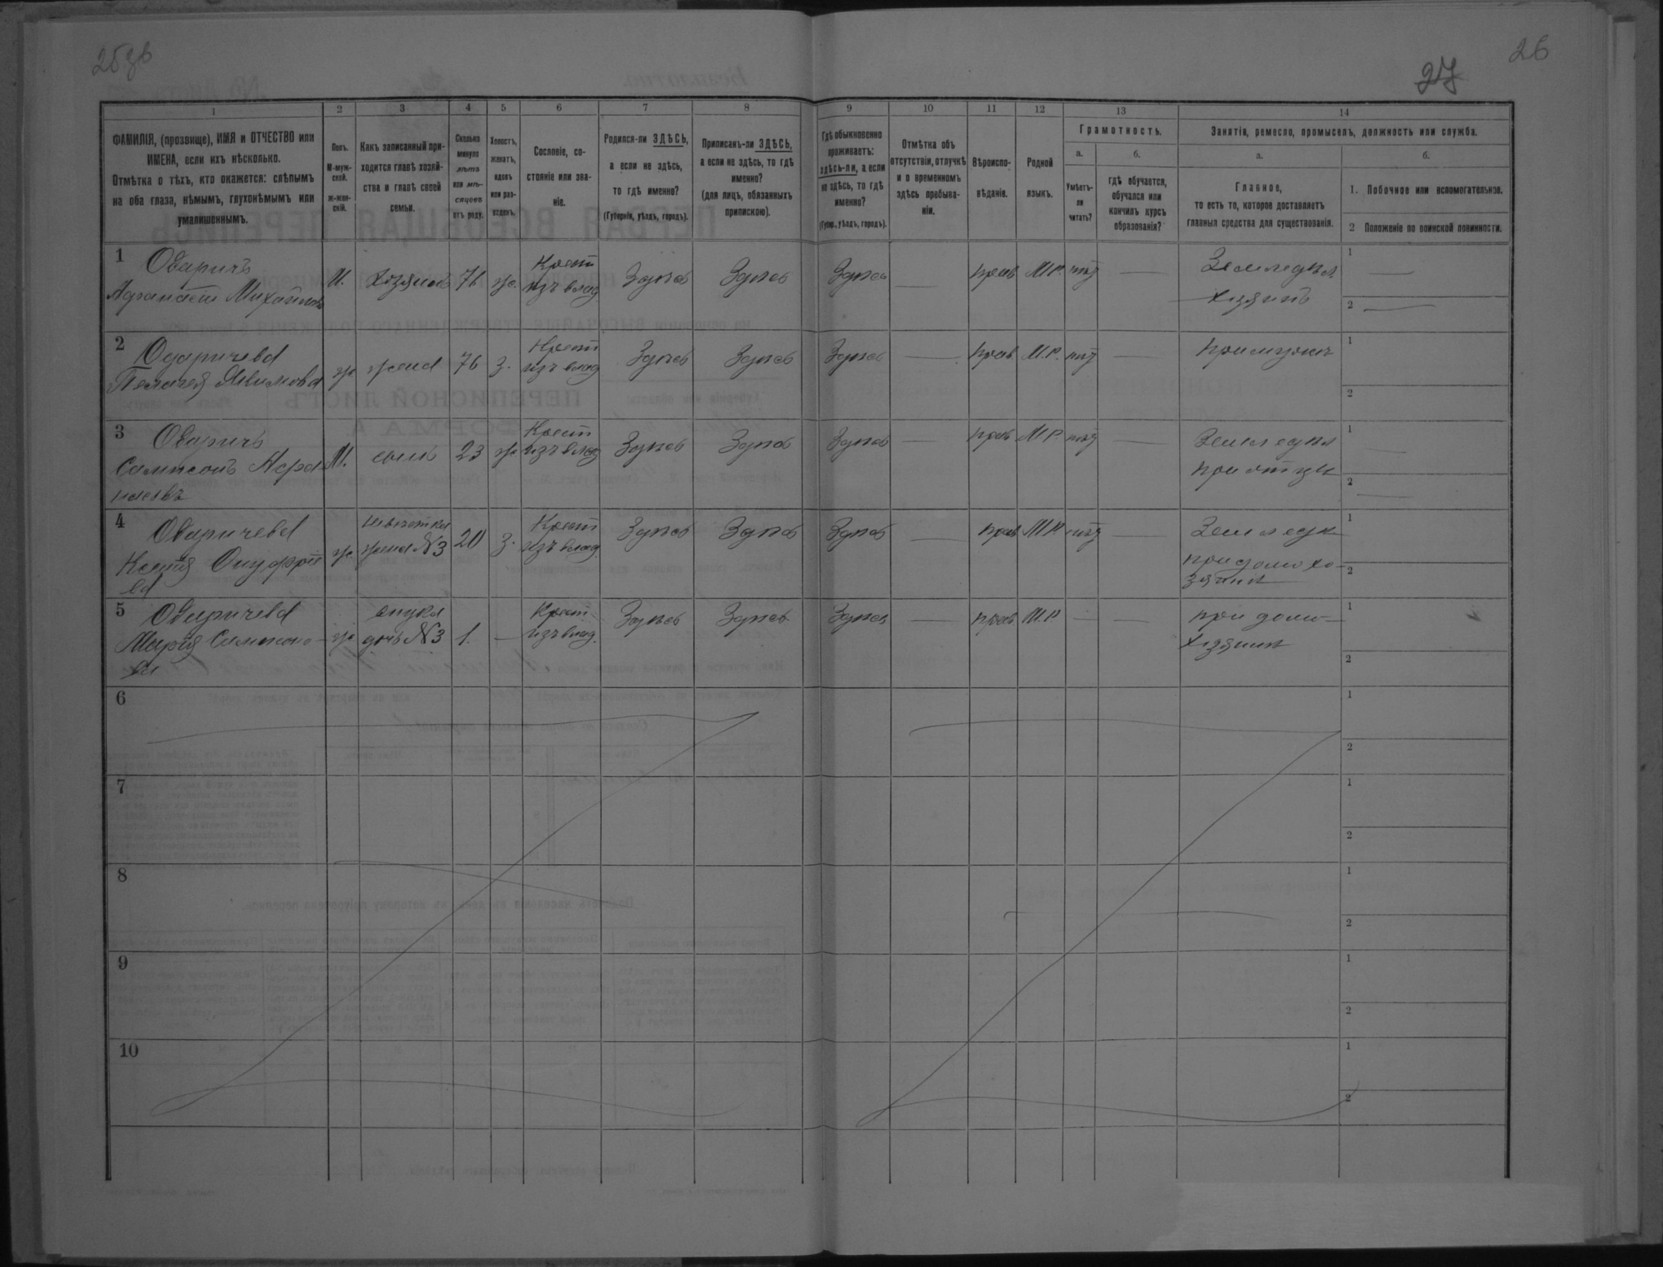 25 об
26
27
1
2
3
4
5
6
7
8
9
10
11
12
13
14
ФАМИЛІЯ, (прозвище), ИМЯ и ОТЧЕСТВО или
ИМЕНА, если ихъ нѣсколько.
Отмѣтка о тѣхъ, кто окажется: слѣпымъ
на оба глаза, нѣмымъ, глухонѣмымъ или
умалишеннымъ.
Полъ.
М-муж-
ской.
Ж-жен-
скій.
Какъ записанный при-
ходится главѣ хозяй-
ства и главѣ своей
семьи.
Сколько
минуло
лѣтъ
или мѣ-
сяцевъ
отъ роду.
Холостъ,
женатъ,
вдовъ
или раз-
веденъ.
Сословіе, со-
стояніе или зва-
ніе.
Родился-ли ЗДѢСЬ,
а если не здѣсь,
то гдѣ именно?
(Губернія, уѣздъ, городъ).
Приписанъ-ли ЗДѢСЬ,
а если не здѣсь, то гдѣ
именно?
(для лицъ, обязанныхъ
припискою).
Гдѣ обыкновенно
проживаетъ:
здѣсь-ли, а если
не здѣсь, то гдѣ
именно?
(Губерн., уѣздъ, городъ).
Отмѣтка объ
отсутствіи, отлучкѣ
и о временномъ
здѣсь пребыва-
ніи.
Вѣроиспо-
вѣданіе.
Родной
языкъ.
Грамотность.
а.
б.
Умѣетъ-
ли
читать?
гдѣ обучается,
обучался или
кончилъ курсъ
образованія?
Занятіе, ремесло, промыселъ, должность или служба.
а.
б.
Главное,
то есть то, которое доставляетъ
главныя средства для существованія.
1. Побочное или вспомогательное.
2 Положеніе по воинской повинности.
1
Оваричъ
Афанасій Михайловъ
М.
хозяинъ
76
ж.
Крест
изъ влад
Здѣсь
Здѣсь
Здѣсь
прав
М.Р.
нѣт
Земледѣл
хозяинъ
1
2
2
Оваричева
Пелагея
ж
жена
76
з.
Крест
изъ влад
Здѣсь
Здѣсь
Здѣсь
прав
М.Р.
нѣт
при мужѣ
1
2
3
Оваричъ
Самсонъ Афа
насьевъ
М.
сынъ
23
ж
Крест
изъ влад
Здѣсь
Здѣсь
Здѣсь
прав
М.Р.
нѣт
Земледѣл
при отцѣ
1
2
4
Оваричева
Ксенія Онуфріе
ва
ж
невѣстка
жена №3
20
з.
Крест
изъ влад
Здѣсь
Здѣсь
Здѣсь
прав
М.Р.
нѣт
Земледѣл
при домохо-
зяинѣ
1
2
5
Оваричева
Марія Самсоно-
ва
ж
внука
дочь №3
1.
Крест
изъ влад.
Здѣсь
Здѣсь
Здѣсь
прав
М.Р.
при домо-
хозяинѣ
1
2
6
1
2
7
1
2
8
1
2
9
1
2
10
1
2